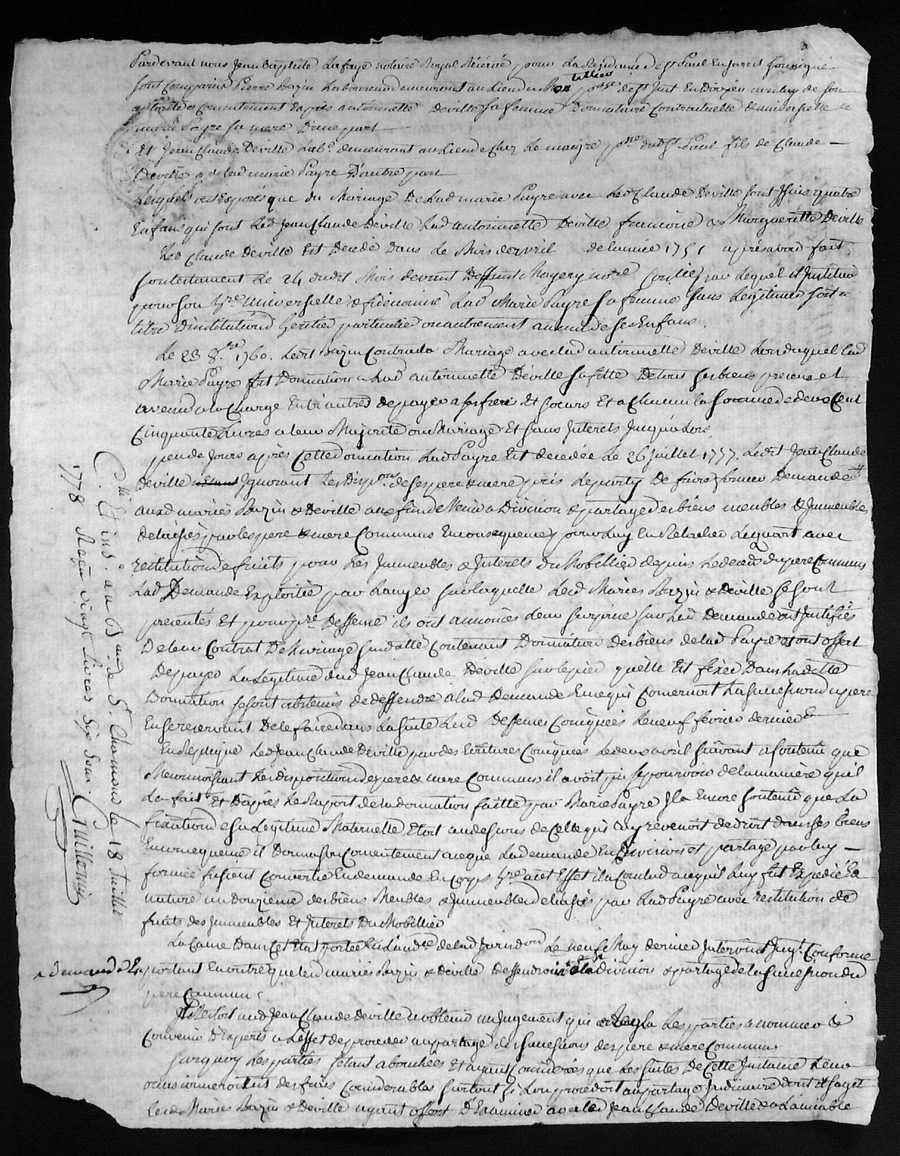 Pardevant nous Jean Baptiste Lafaye notaire Royal Réservé pour La Résidence de St Paul En Jarest soussigné
sont Comparus Pierre Bazin Laboureur demeurant au lieu du
autorité & Consentement d'après antoinette Deville sa femme Donnataire Contractuelle de
marie Payre sa mere D'une part
Et Jean Claude Deville Lab. demeurant au Lieu de chez Le maigre psse dudt St Paul fils de Claude
Deville & de Lad marie Payre D'autre part
Lesquels ont Exposés que du Mariage de Lad marie Payre avec Led Claude Deville sont Issus quatre
Enfans qui sont Led Jean Claude Deville Lad antoinette Deville francoise & Margueritte Deville
Led Claude Deville Est Decédé Dans Le Mois d'avril de l'année 1751 après avoir fait
son testament Le 24 dudit Mois devant Deffunt notre par Lequel il Institua
pour son hre Universelle & fidéicommise Lad Marie Payre sa femme sans Leguer soit a
titre D'institution d'heritier particulier ou autrement aucun de ses Enfans.
Le 23 8.re 1760. Ledit Bazin Contracta Mariage avec Lad antoinette Deville Lors duquel Lad
Marie Payre fit Donnation a Lad antoinette Deville sa fille De tous ses biens presens et
avenir a la Charge Entr'autres de payer a ses frere Et soeurs Et a Chacun la somme de deux Cent
Cinquante Livres a leur Majorité ou Mariage Et sans Interets Jusqu'a Lors
peu de Jours après Cette Donnation Lad Payre Est decedée Le 26 Juillet 1777. Ledit Jean Claude
Deville Ignorant Les Dispons. de ses pere & mere pris le party de faire former Demande
aux d mariés Bazin & Deville aux fins de Venir a Division & partage des biens meubles & Immeubles
delaissés par les pere & mere Communs En consequence pour Luy En Relacher Le quart avec
restitution de fruits pour Les Immeubles & Interets du Mobillier depuis Le decès du pere Commun
Lad Demande Exploitée par Lanyer sur laquelle Led Mariés Bazin & deville se sont
presentés Et pour pre. Deffense ils ont annoncés Leur surprise sur Lad Demande ont Justifiés
De leur Contrat De Mariage Susdatté Contenant Donnation des biens de lad Payre & ont offert
De payer La legitime dud Jean Claude Deville sur le pied qu'elle Est fixée Dans Ladte
Donnation se sont abstenus de deffendre a lad Demande En ce qui Concernoit La succession du pere
En se reservant De le faire dans La suite Lesd Deffenses Coniquées le neuf fevrier dernier
En Replique Led Jean Claude Deville par des Ecritures Coniquées Le deux avril suivant a soutenu que
Meconnoissant Les disposition des pere & mere Communs il avoit pu se pourvoir de la maniere qu'il
La fait Et d'après Le Raport de la donnation faitte par Marie Payre Il a Encore soutenu que La
fixation de sa Legitime Maternelle Etoit audessous de Celle qui luy revenoit de droit dans ses biens
En consequence il Donna son Consentement a ce que La demande En Division et partage par luy
formée fussent Convertie En demande En Corps hre a cet Effet il a Conclud a ce qu'il Luy fut Expedié En
nature un Douzieme des biens Meubles & Immeubles delaissés par Lad Payre avec restitution de
fruits des Immeubles Et Interets Du Mobillier
La Cause Dans cet Etat portée En L'aud.ce de lad Jurisdon Le neuf May dernier Intervint Jugt Conforme
portant En outre que Led mariés Bazin & deville deffendroient a la division & partage de la succession du
pere Commun.
Led Jean Claude Deville a obtenu un Jugement qui Regla Les parties a nommer &
Convenir D'Experts a L'effet de proceder au partage des successions des pere & mere Communs
Surquoy Les parties s'etant abouchées Et ayant Considérés que Les suites de Cette Instance Leur
occasionneroient des frais Considerables surtout si L'on procedoit au partage
Lesd Mariés Bazin & Deville ayant offert D'Examiner avec led Jean Claude Deville & a L'amiable
a demande
C.lé Et ins. au B. au de St Chamond le 18 Juillet
1778 Reçu vingt Livres six sous. Guillemin